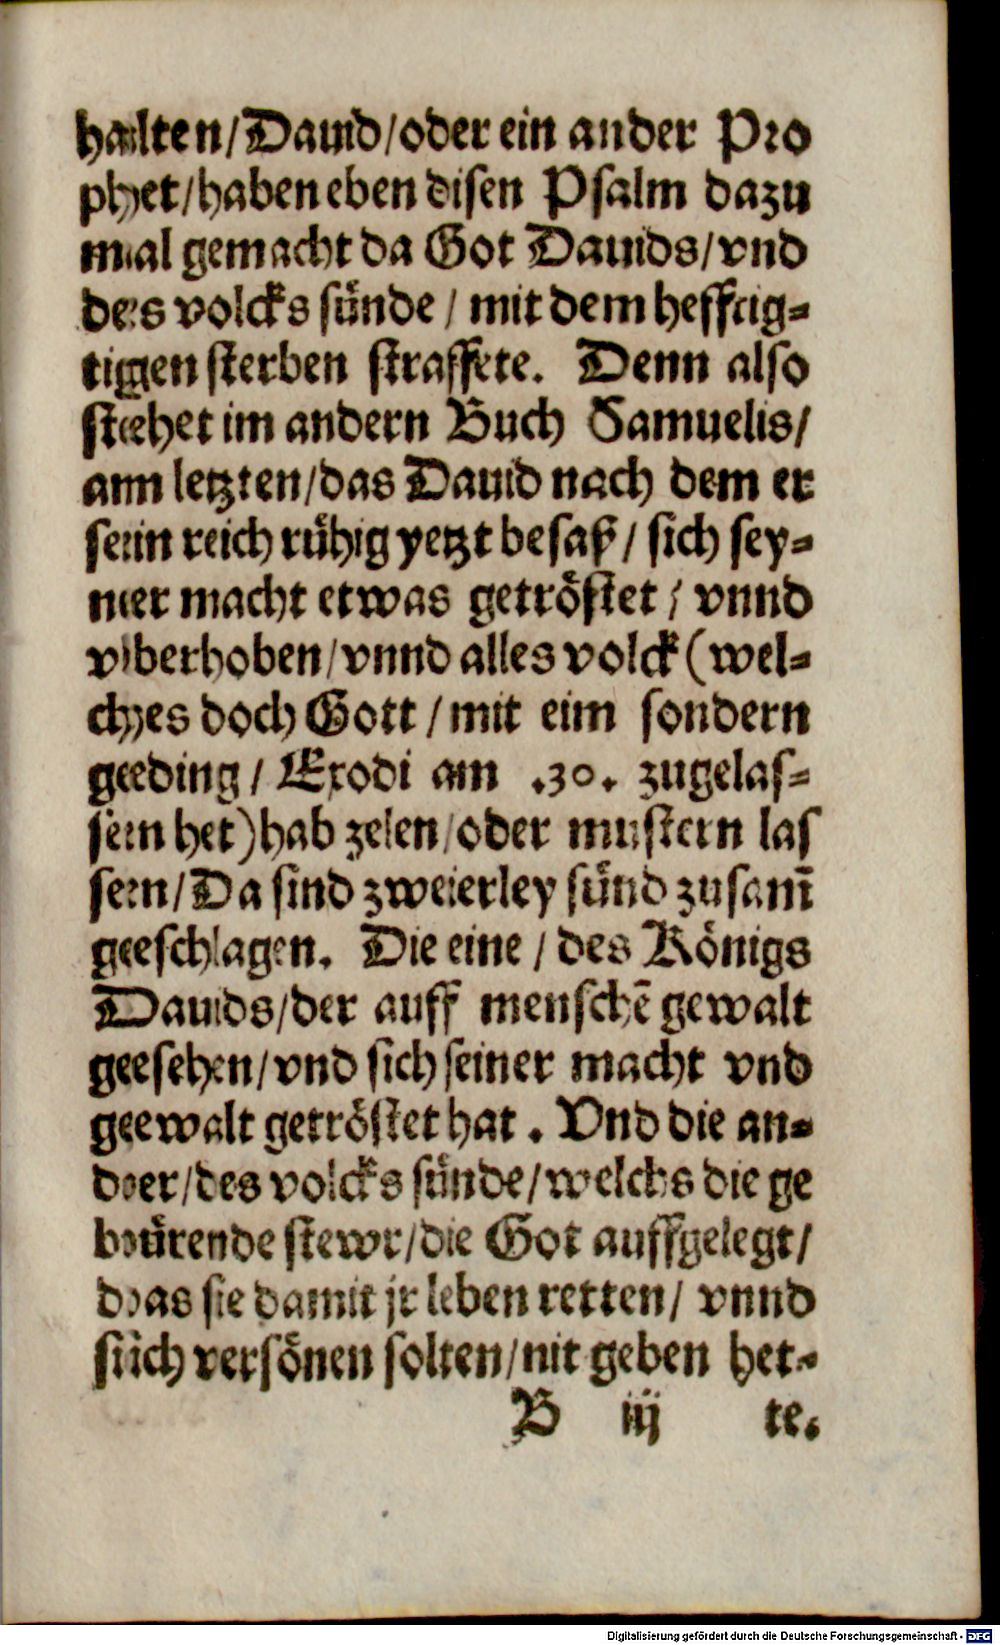 halten/Dauid/oder ein ander Pro
phet/haben eben disen Psalm dazu
mal gemacht da Got Dauids/vnd
des volcks sünde/ mit dem hefftig-
tigen sterben straffete. Denn also
stehet im andern Buch Samuelis/
am letzten/das Dauid nach dem er
sein reich rühig yetzt besaß/ sich sey-
ner macht etwas getröstet/ vnnd
vberhoben/vnnd alles volck (wel-
ches doch Gott/mit eim sondern
geding/ Exodi am .30. zugelas-
sen het)hab zelen/oder mustern las
sen/Da sind zweierley sünd zusam̄
geschlagen. Die eine/ des Königs
Dauids/der auff menschē gewalt
gesehen/vnd sich seiner macht vnd
gewalt getröstet hat. Vnd die an-
der/des volcks sünde/welchs die ge
bürende stewr/die Got auffgelegt/
das sie damit jr leben retten/ vnnd
sich versönen solten/nit geben het-
B iij te.
Digitalisierung gefördert durch die Deutsche Forschungsgemeinschaft - DFG